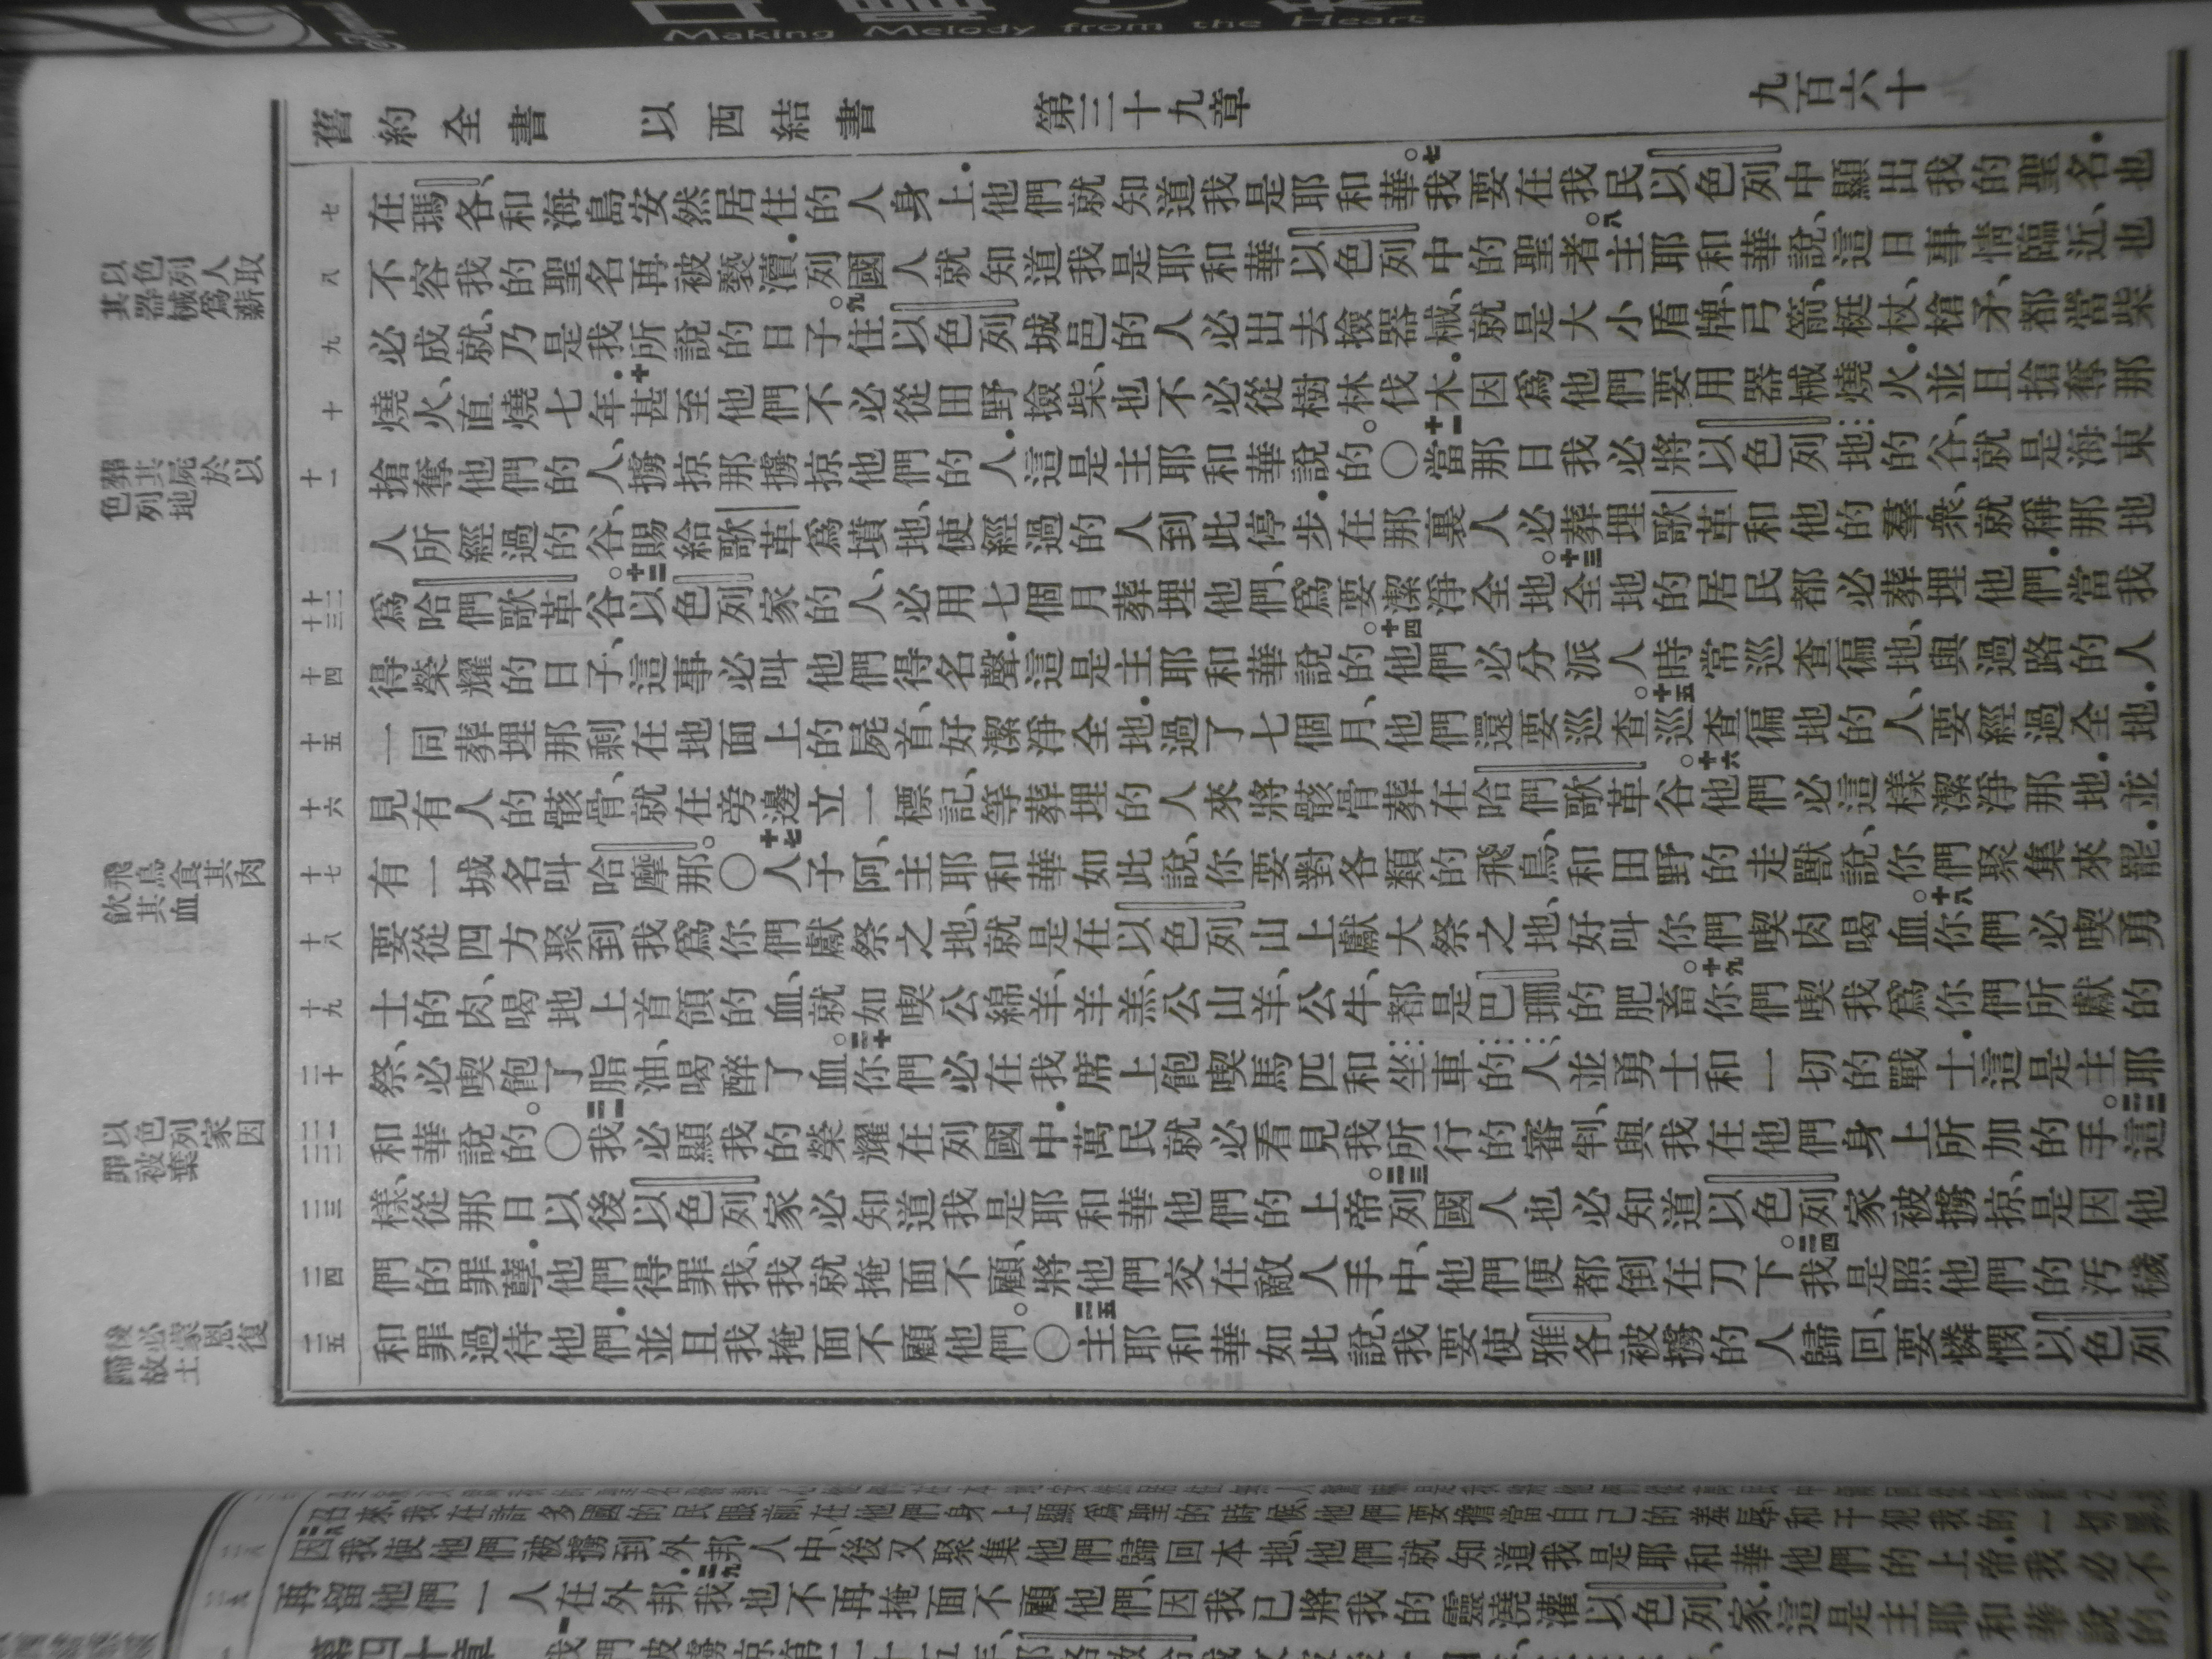 Making Melody from the Heart
舊約全書 以西結書 第三十九章 九百六十
七
在瑪各、和海島安然居住的人身上．他們就知道我是耶和華。七我要在我民以色列中顯出我的聖名．也
八
不容我的聖名再被褻瀆．列國人就知道我是耶和華以色列中的聖者。八主耶和華說、這日事情臨近、也
九
必成就、乃是我所說的日子。九住以色列城邑的人必出去撿器械、就是大小盾牌、弓箭、梃杖、槍矛、都當柴
十
燒火、直燒七年．十甚至他們不必從田野撿柴、也不必從樹林伐木．因爲他們要用器械燒火．並且搶奪那
十一
搶奪他們的人、擄掠那擄掠他們的人．這是主耶和華說的。〇十一當那日我必將以色列地的谷、就是海東
人所經過的谷、賜給歌革爲墳地、使經過的人到此停步．在那裏人必葬埋歌革和他的羣衆、就稱那地
十二
十三
爲哈們歌革谷。十二以色列家的人、必用七個月葬埋他們、爲要潔淨全地。十三全地的居民都必葬埋他們．當我
十四
得榮耀的日子、這事必叫他們得名聲．這是主耶和華說的。十四他們必分派人時常巡查徧地、與過路的人
十五
一同葬埋那剩在地面上的屍首、好潔淨全地．過了七個月、他們還要巡查。十五巡查徧地的人、要經過全地．
十六
見有人的骸骨、就在旁邊立一標記、等葬埋的人來將骸骨葬在哈們歌革谷。十六他們必這樣潔淨那地．並
十七
有一城名叫哈摩那。〇十七人子阿、主耶和華如此說、你要對各類的飛鳥、和田野的走獸說、你們聚集來罷．
十八
要從四方聚到我爲你們獻祭之地、就是在以色列山上獻大祭之地、好叫你們喫肉喝血。十八你們必喫勇
十九
士的肉、喝地上首領的血、就如喫公綿羊、羊羔、公山羊、公牛、都是巴珊的肥畜。十九你們喫我爲你們所獻的
二十
祭、必喫飽了脂油、喝醉了血。二十你們必在我席上飽喫馬匹和坐車的人、並勇士和一切的戰士．這是主耶
二一
二二
和華說的。〇二一我必顯我的榮耀在列國中．萬民就必看見我所行的審判、與我在他們身上所加的手。二二這
二三
樣、從那日以後以色列家必知道我是耶和華他們的上帝。二三列國人也必知道以色列家被擄掠、是因他
二四
們的罪孽．他們得罪我、我就掩面不顧、將他們交在敵人手中、他們便都倒在刀下。二四我是照他們的汚穢
二五
和罪過待他們．並且我掩面不顧他們。〇二五主耶和華如此說、我要使雅各被擄的人歸回、要憐憫以色列
以色列人取
其器械爲薪
葬其屍於以
色列地
飛鳥食其肉
飲其血
以色列家因
罪被棄
後必蒙恩復
歸故土
召來、我在許多國的民眼前、在他們身上顯爲聖的時候、他們要擔當自己的羞辱、和干犯我的一切罪
因我使他們被擄到外邦人中、後又聚集他們歸回本地、他們就知道我是耶和華他們的上帝．我必不
再留他們一人在外邦．二九我也不再掩面不顧他們、因我已將我的靈澆灌以色列家．這是主耶和華說的。
第四十章